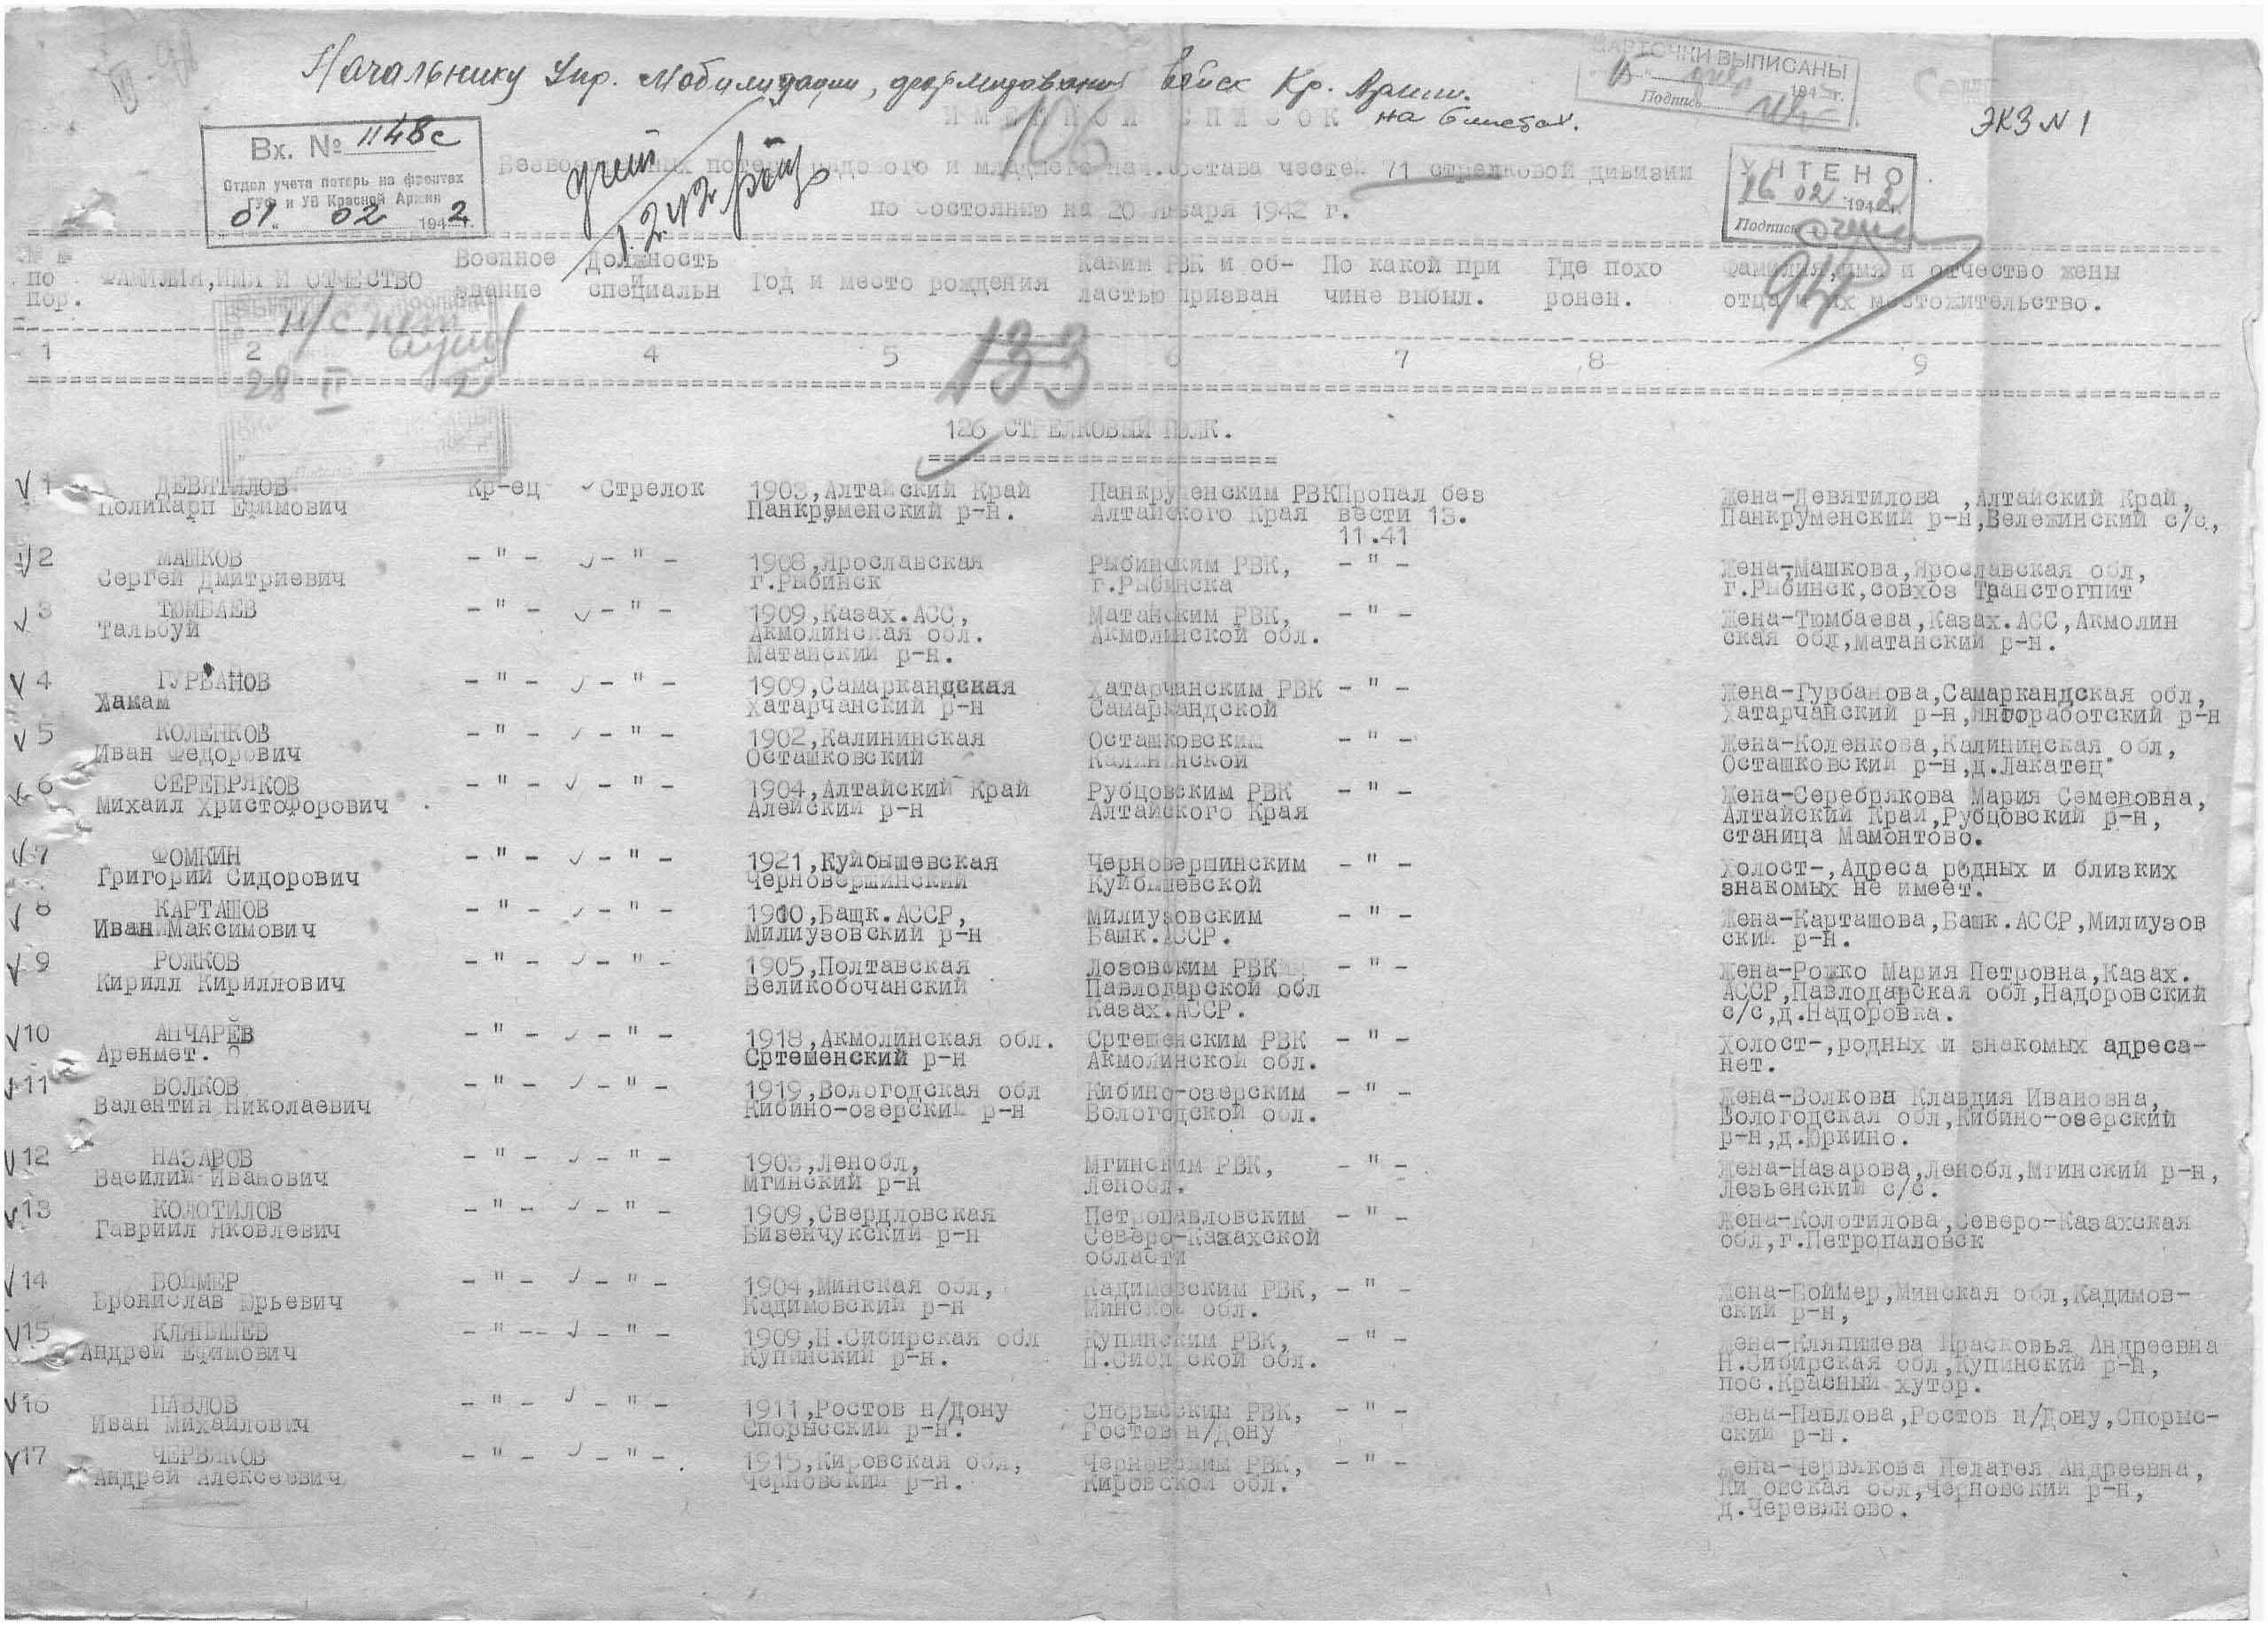 Начальнику Упр. Мобилизации, формирования Войск Кр. Армии.
на 6 листах.
ЭКЗ № 1
КАРТОЧКИ ВЫПИСАНЫ
194 г.
Подпись
106
ИМЕННОЙ СПИСОК
Вх. № 1148с
Отдел учета потерь на фронтах
ГУФ и УВ Красной Армии
01. 02 1942 г.
учет
1.2.42
Безвозвратных потерь рядового и младшего нач.состава частей 71 стрелковой дивизии
по состоянию на 20 января 1942 г.
УЧТЕНО
16 02 1942 г.
Подпись
№ №
по
пор.
ФАМИЛИЯ,ИМЯ И ОТЧЕСТВО
Военное
звание
Должность
и
специальн
Год и место рождения
Каким РВК и об-
ластью призван
По какой при
чине выбыл.
Где похо
ронен.
Фамилия,имя и отчество жены
отца и их местожительство.
28 II 2
1 2 4 5 6 7 8 9
133
126 СТРЕЛКОВЫЙ ПОЛК.
1 ДЕВЯТИЛОВ Кр-ец Стрелок 1903,Алтайский Край Панкруменским РВК Пропал без Жена-Девятилова ,Алтайский Край,
Поликарп Ефимович Панкруменский р-н. Алтайского Края вести 13. Панкруменский р-н,Вележинский с/с.,
11.41
2 МАШКОВ -"- -"- 1908,Ярославская Рыбинским РВК, -"- Жена-Машкова,Ярославская обл,
Сергей Дмитриевич г.Рыбинск г.Рыбинска г.Рыбинск,совхоз Транстогпит
3 ТЮМБАЕВ -"- -"- 1909,Казах.АСС, Матанским РВК, -"- Жена-Тюмбаева,Казах.АСС,Акмолин
Тальбуй Акмолинская обл. Акмолинской обл. ская обл,матанский р-н.
Матанский р-н.
4 ГУРБАНОВ -"- -"- 1909,Самаркандская Хатарчанским РВК -"- Жена-Гурбанова,Самаркандская обл,
Хамам Хатарчанский р-н Самаркандской Хатарчанский р-н, р-н
5 КОЛЕНКОВ -"- -"- 1902,Калининская Осташковским -"- Жена-Коленкова,Калининская обл,
Иван Федорович Осташковский Калининской Осташковский р-н,д.Лакатец
6 СЕРЕБРЯКОВ -"- -"- 1904,Алтайский Край Рубцовским РВК -"- Жена-Серебрякова Мария Семеновна,
Михаил Христофорович Алейский р-н Алтайского Края Алтайский Край,Рубцовский р-н,
станица Мамонтово.
7 ФОМКИН -"- -"- 1921,Куйбышевская Черновершинским -"- Холост-,Адреса родных и близких
Григорий Сидорович Черновершинский Куйбышевской знакомых не имеет.
8 КАРТАШОВ -"- -"- 1900,Башк.АССР, Милиузовским -"- Жена-Карташова,Башк.АССР,Милиузов
Иван Максимович Милиузовский р-н Башк.АССР. ский р-н.
9 РОЖКОВ -"- -"- 1905,Полтавская Лозовским РВК -"- Жена-Рошко Мария Петровна,Казах.
Кирилл Кириллович Великобочанский Павлодарской обл АССР,Павлодарская обл,Надоровский
Казах.АССР. с/с,д.Надоровка.
10 АНЧАРЕВ -"- -"- 1918,Акмолинская обл. Сртешенским РВК -"- Холост-,родных и знакомых адреса-
Аренмет. Сртешенский р-н Акмолинской обл. нет.
11 ВОЛКОВ -"- -"- 1919,Вологодская обл Кибино-озерским -"- Жена-Волкова Клавдия Ивановна,
Валентин Николаевич Кибино-озерский р-н Вологодской обл. Вологодская обл,Кибино-озерский
р-н,д.Юркино.
12 НАЗАРОВ -"- -"- 1903,Ленобл, Мгинским РВК, -"- Жена-Назарова,Ленобл,Мгинский р-н,
Василий Иванович Мгинский р-н Ленобл. Лезьенский с/с.
13 КОЛОТИЛОВ -"- -"- 1909,Свердловская Петропавловским -"- Жена-Колотилова,Северо-Казахская
Гавриил Яковлевич Бизенчукский р-н Северо-Казахской обл,г.Петропаловск
области
14 БОЙМЕР -"- -"- 1904,Минская обл, Кадимовским РВК, -"- Жена-Боймер,Минская обл,Кадимов-
Бронислав Юрьевич Кадимовский р-н Минской обл. ский р-н,
15 КЛЯПЫШЕВ -"-- -"- 1909,Н.Сибирская обл Купинским РВК, -"- Жена-Кляпишева Прасковья Андреевна
Андрей Ефимович Купинский р-н. Н.Сибирской обл. Н.Сибирская обл,Купинский р-н,
пос.Красный хутор.
16 ПАВЛОВ -"- -"- 1911,Ростов н/Дону Спорысским РВК, -"- Жена-Павлова,Ростов н/Дону,Спорыс-
Иван Михайлович Спорысский р-н. Ростов н/Дону ский р-н.
17 ЧЕРВЯКОВ -"- -"-. 1915,Кировская обл, Черновским РВК, -"- Жена-Червякова Пелагея Андреевна,
Андрей Алексеевич Черновский р-н. Кировской обл. Кировская обл,Черновский р-н,
д.Черевяново.